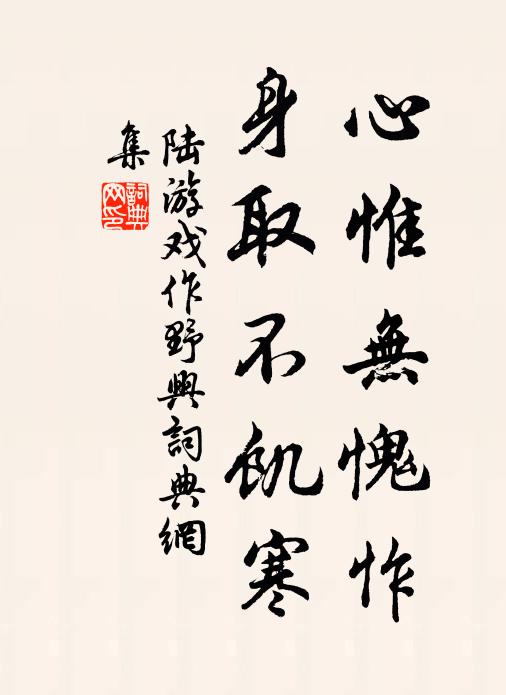 心惟無愧怍
身取不飢寒
陆游戏作野興詞典網
集
詞典網印